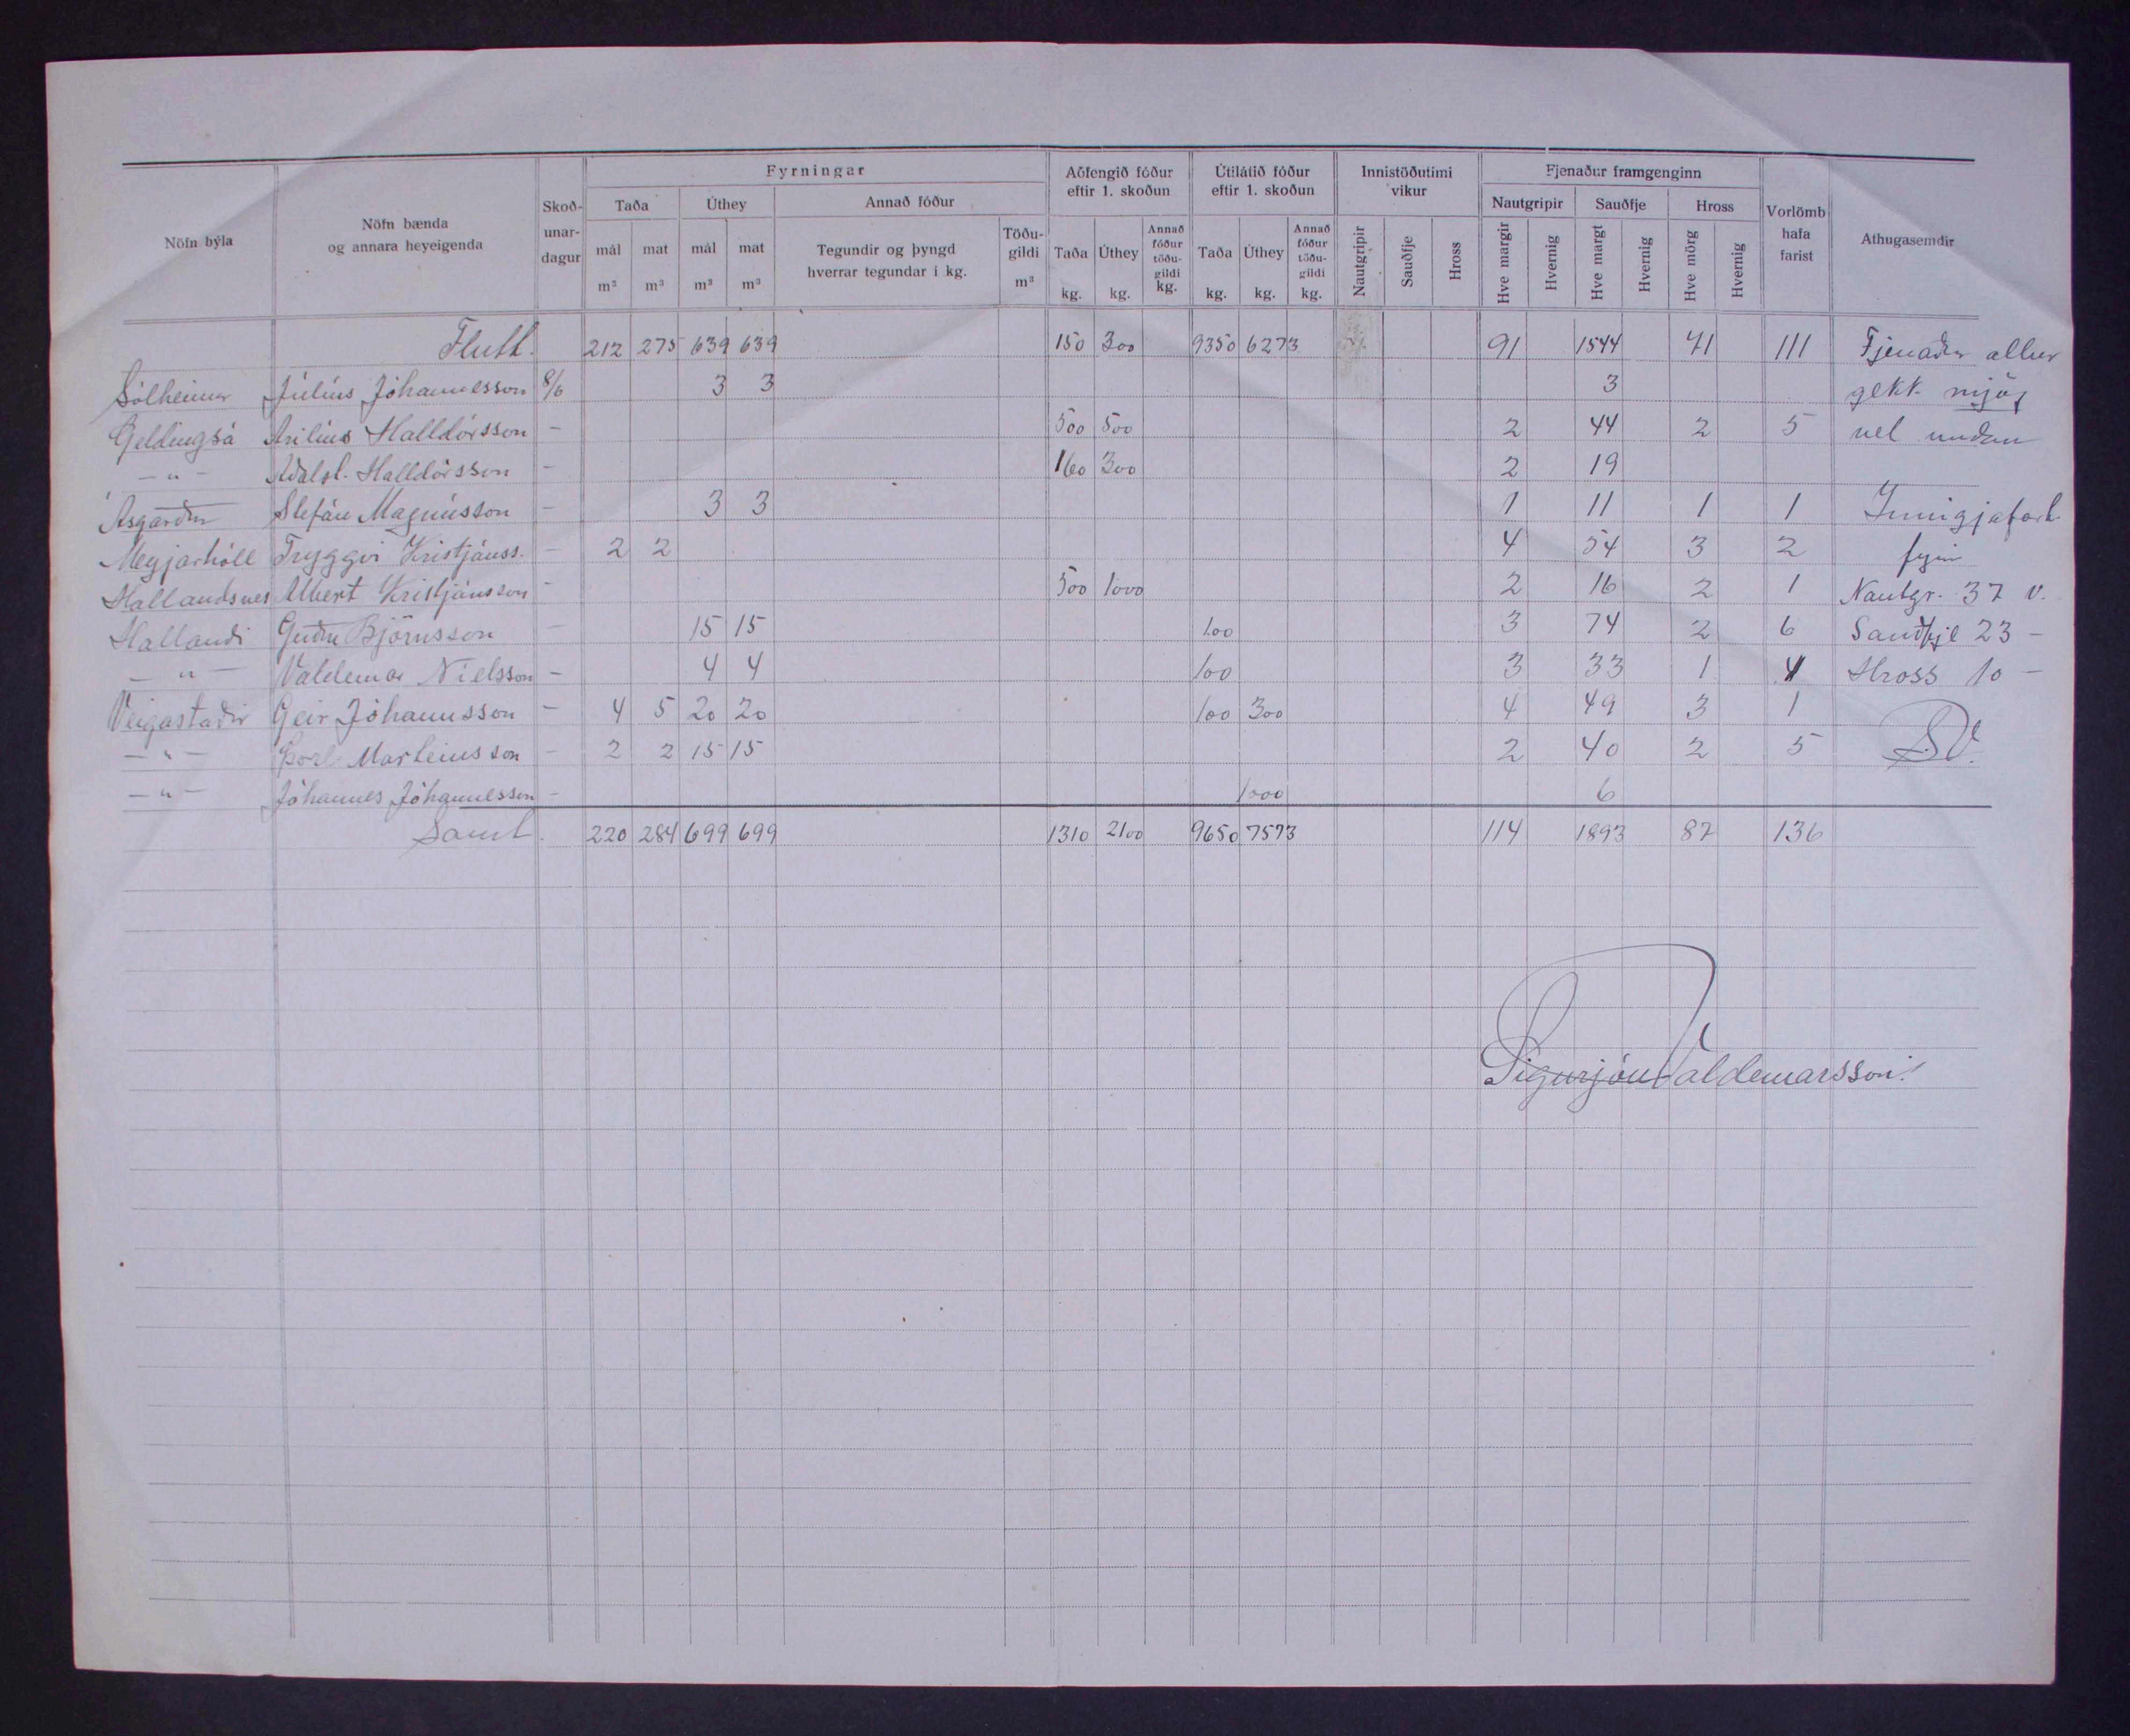 Nöfn býla | Nöfn bænda og annara heyeigenda | Skoð-unar-dagur | Fyrningar | Aðfengið fóður eftir 1. skoðun | Útilátið fóður eftir 1. skoðun | Innistöðutími vikur | Fjenaður framgenginn | Vorlömb hafa farist | Athugasemdir
Taða | Úthey | Annað fóður | Nautgripir | Sauðfje | Hross
mál m³ | mat m³ | mál m³ | mat m³ | Tegundir og þyngd hverrar tegundar í kg. | Töðu-gildi m³ | Taða kg. | Úthey kg. | Annað fóður töðu-gildi kg. | Taða kg. | Úthey kg. | Annað fóður töðu-gildi kg. | Nautgripir | Sauðfje | Hross | Hve margir | Hvernig | Hve margt | Hvernig | Hve mörg | Hvernig
Flutt. 212 275 639 639 150 300 9350 6273 91 1544 71 111 Fjenaður allur
Sólheimar Júlíus Jóhannesson 8/6 3 3 3 gekk mjög
Geldingsá Arilíus Halldórsson - 500 500 2 44 2 5 vel undan
- " - Aðalst. Halldórsson - 160 300 2 19
Ásgarður Stefán Magnússon - 3 3 1 11 1 1 Innigjafart.
Meyjarhóll Tryggvi Kristjánss. - 2 2 4 54 3 2 fyrir
Hallandsnes Albert Kristjánsson - 500 1000 2 16 2 1 Nautgr. 37 v.
Hallandi Guðm Björnsson - 15 15 100 3 74 2 6 Sauðfje 23 -
- " - Valdemar Níelsson - 4 4 100 3 33 1 4 Hross 10 -
Veigastaðir Geir Jóhannsson - 4 5 20 20 100 300 4 49 3 1
- " - Þorl. Marteinsson - 2 2 15 15 2 40 2 5 SV.
- " - Jóhannes Jóhannesson - 1000 6
Samt. 220 284 699 699 1310 2100 9650 7573 114 1893 87 136
Sigurjón Valdemarsson